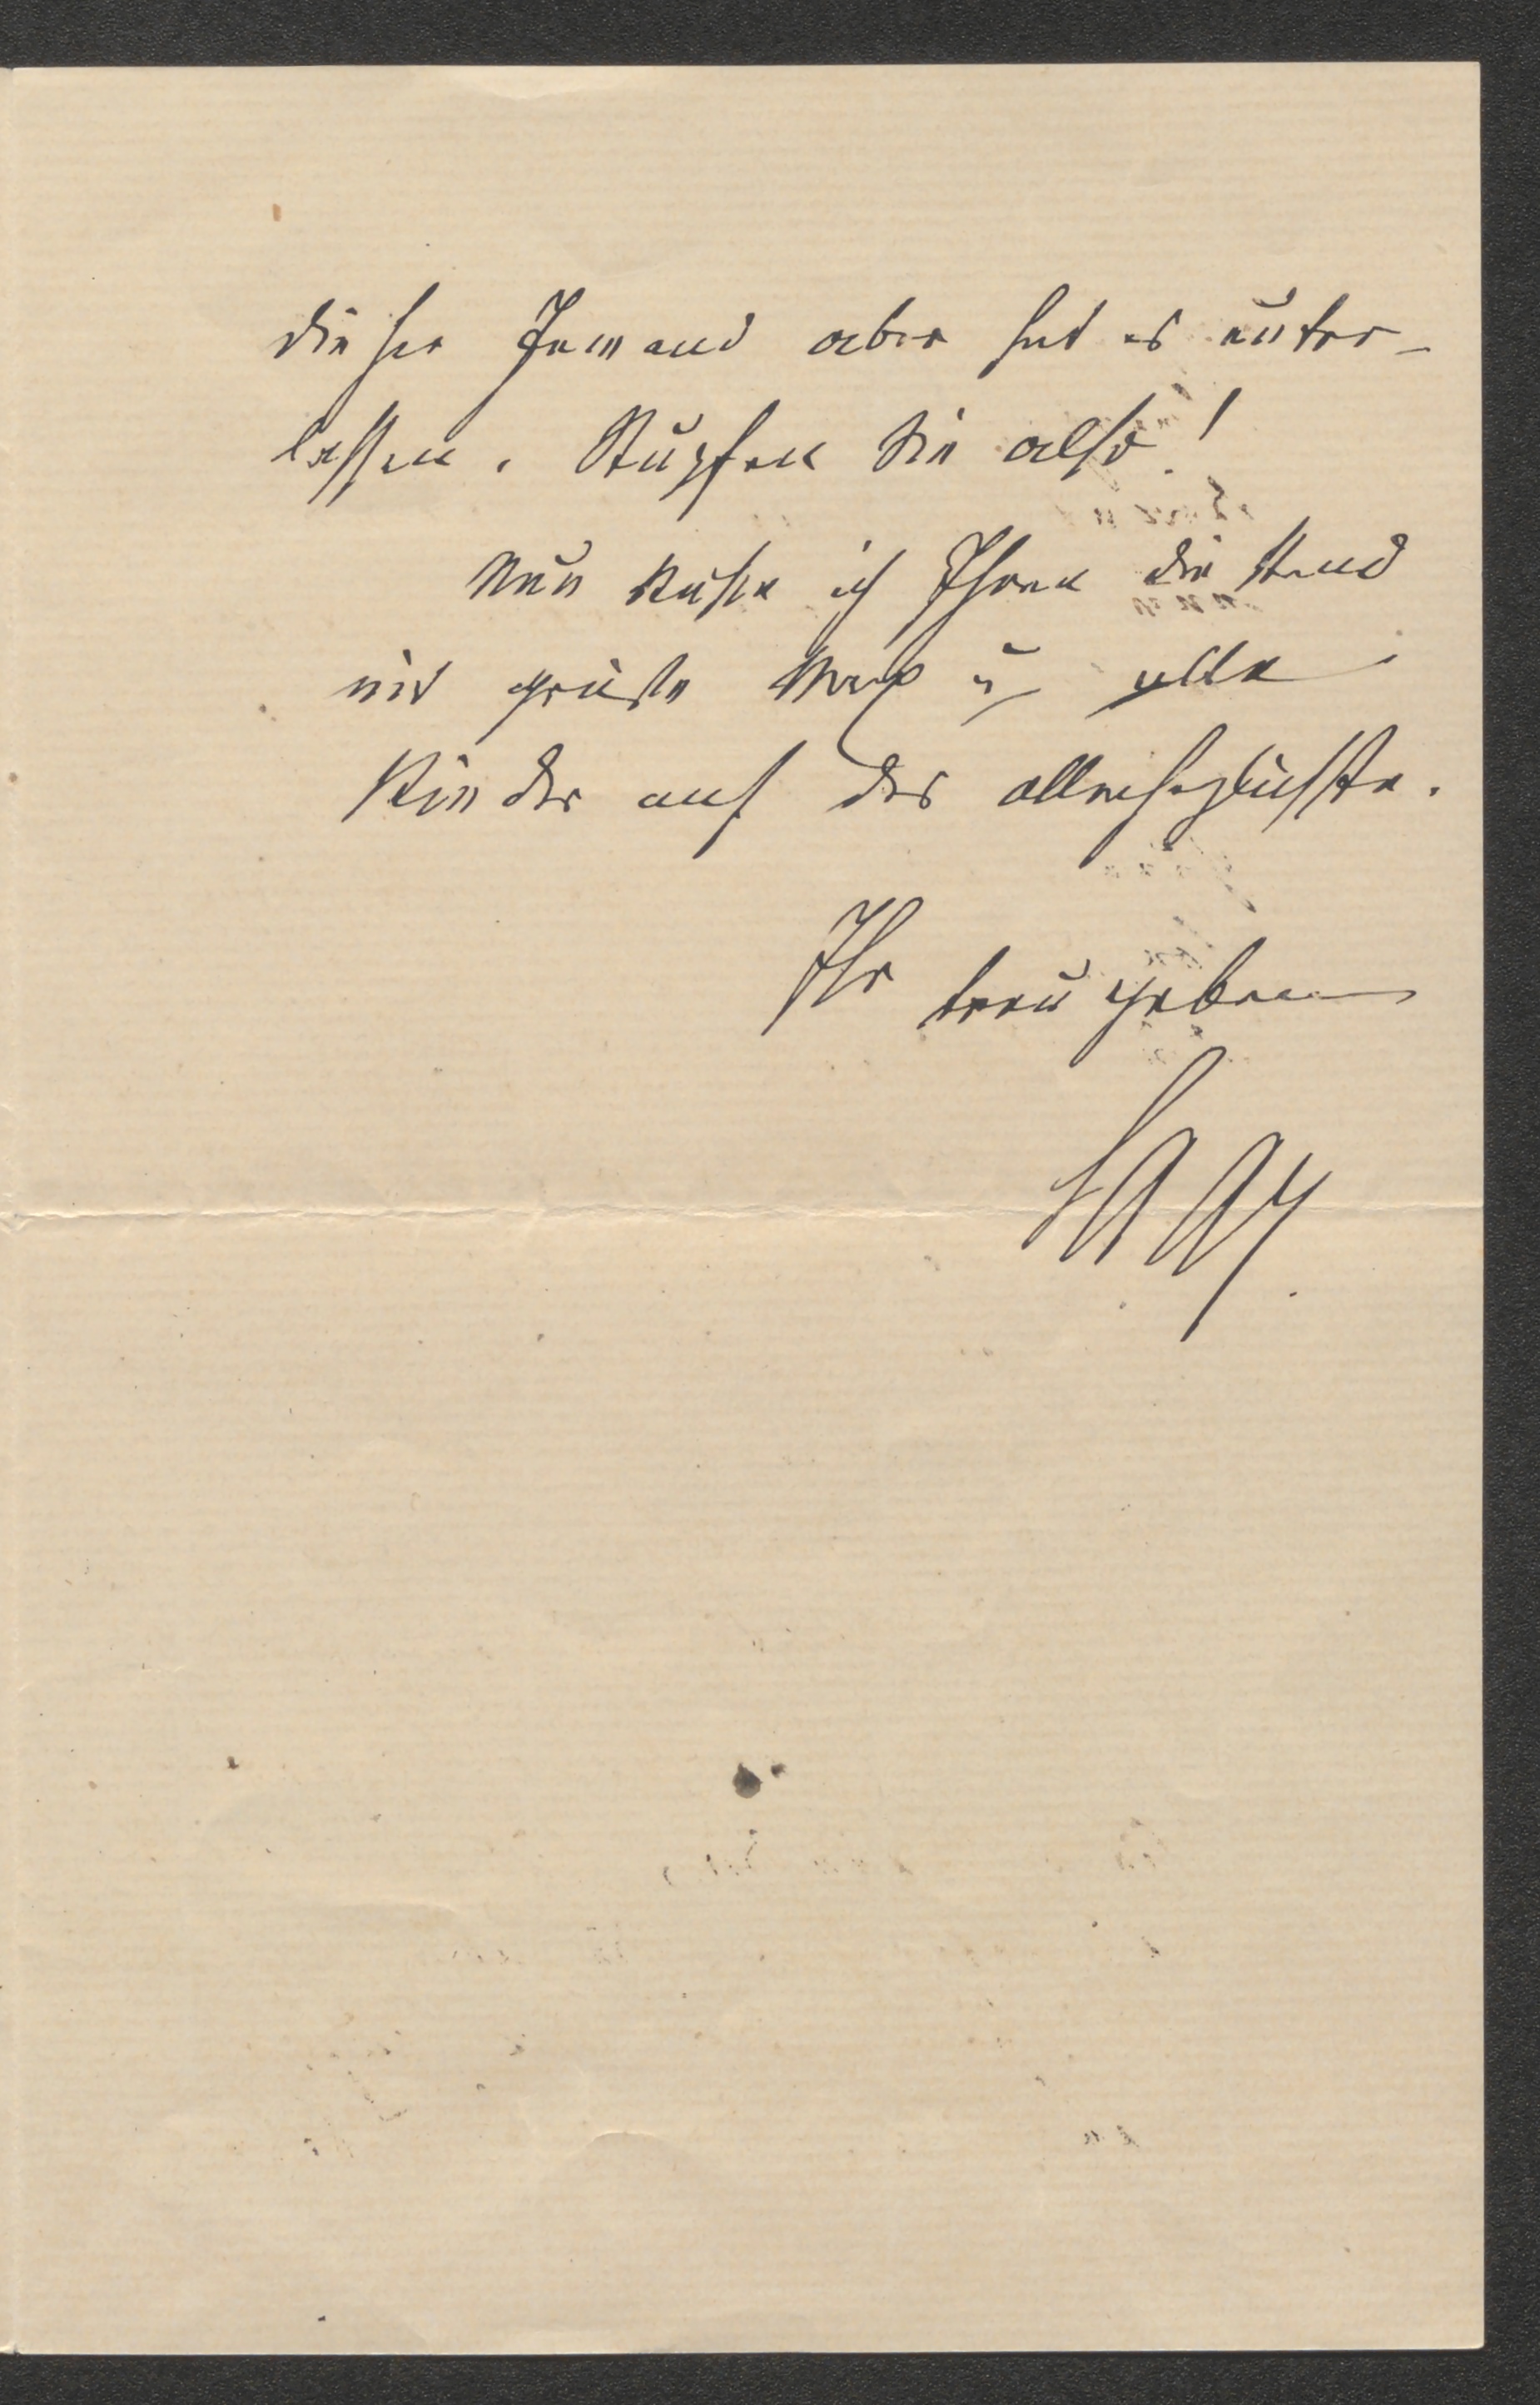 dieser Jemand aber hat es unter-
lassen. Stupfen Sie also!
Nun küsse ich Ihnen die Hand
und grüsse Max u alle
Kinder auf das allerherzlichste.
Ihr treu ergebener